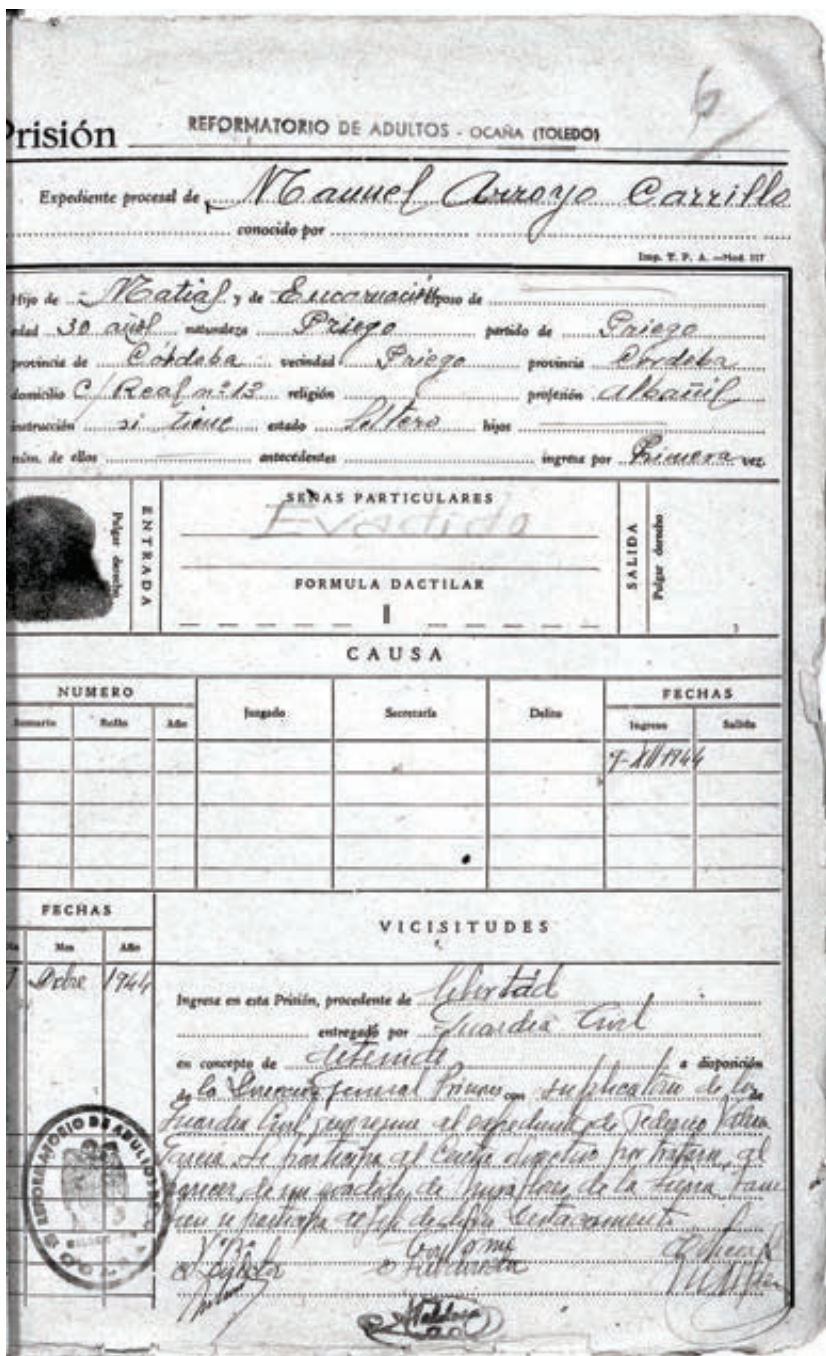 6
Prisión REFORMATORIO DE ADULTOS - OCAÑA (TOLEDO)
Expediente procesal de Manuel Arroyo Carrillo
conocido por
Imp. T. P. A. —Mod. 117
Hijo de Matias y de Encarnación esposo de
edad 30 años naturaleza Priego partido de Priego
provincia de Córdoba vecindad Priego provincia Córdoba
domicilio C/ Real nº 13 religión profesión Albañil
instrucción si tiene estado Soltero hijos
núm. de ellos antecedentes ingresa por Primera vez.
Pulgar derecho
ENTRADA
SEÑAS PARTICULARES
Evadido
FORMULA DACTILAR
SALIDA
Pulgar derecho
CAUSA
NUMERO FECHAS
Sumario Rollo Año Juzgado Secretaría Delito Ingreso Salida
7-XII-1944
FECHAS VICISITUDES
Mes Año
7 Dcbre 1944
Ingresa en esta Prisión, procedente de libertad
entregado por Guardia Civil
en concepto de detenido a disposición
de la Dirección General Prisiones con suplicatorio de la
Guardia Civil, al expediente de Federico
García. Se participa al Centro directivo por tratarse, al
parecer, de un evadido de Miraflores de la Sierra. Tam
bien se participa Destacamento
REFORMATORIO DE ADULTOS
Vº Bº
El Director